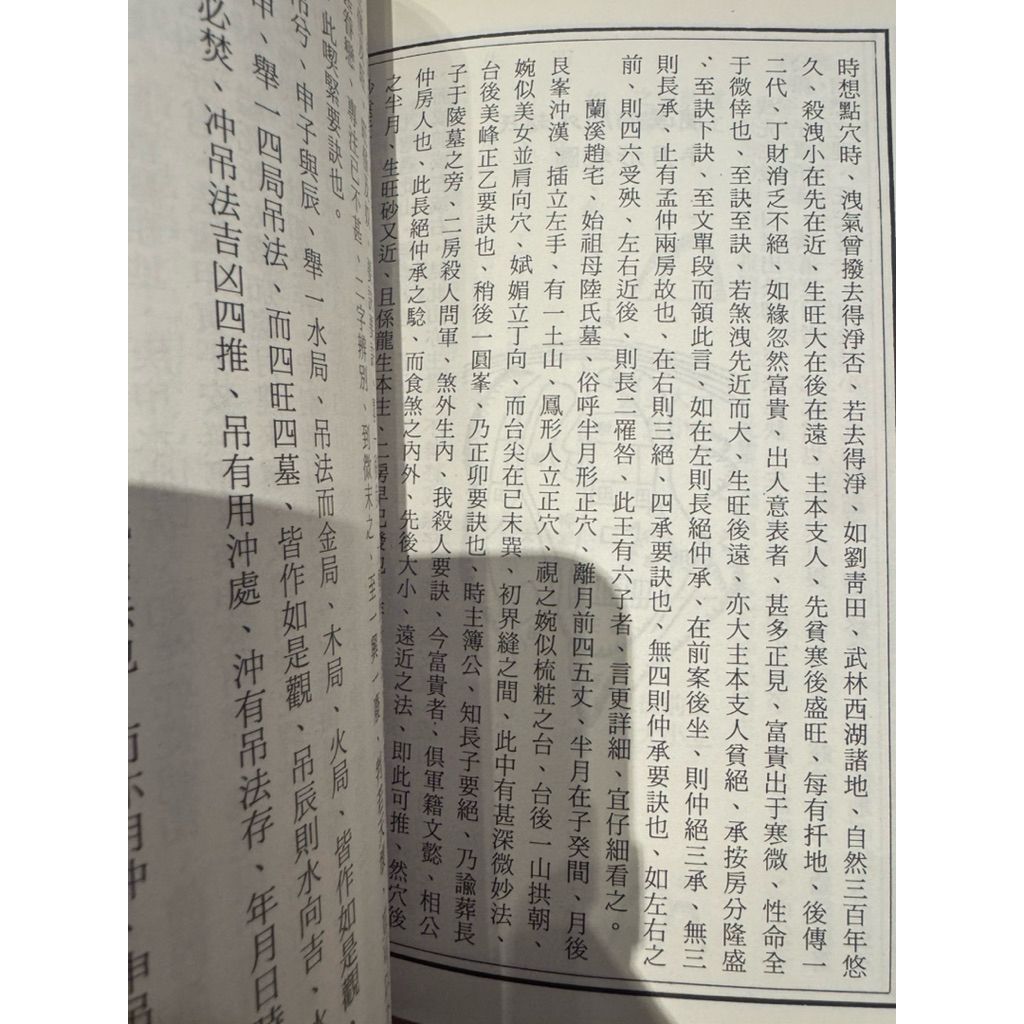 時想點穴時、洩氣曾撥去得淨否、若去得淨、如劉靑田、武林西湖諸地、自然三百年悠
久、殺洩小在先在近、生旺大在後在遠、主本支人、先貧寒後盛旺、每有扦地、後傳一
二代、丁財消乏不絕、如緣忽然富貴、出人意表者、甚多正見、富貴出于寒微、性命全
于微倖也、至訣至訣、若煞洩先近而大、生旺後遠、亦大主本支人貧絕、承按房分隆盛
、至訣下訣、至文單段而領此言、如在左則長絕仲承、在前案後坐、則仲絕三承、無三
則長承、止有孟仲兩房故也、在右則三絕、四承要訣也、無四則仲承要訣也、如左右之
前、則四六受殃、左右近後、則長二罹咎、此王有六子者、言更詳細、宜仔細看之。
蘭溪趙宅、始祖母陸氏墓、俗呼半月形正穴、離月前四五丈、半月在子癸間、月後
艮峯沖漢、插立左手、有一土山、鳳形人立正穴、視之婉似梳粧之台、台後一山拱朝、
婉似美女並肩向穴、斌媚立丁向、而台尖在巳未巽、初界縫之間、此中有甚深微妙法、
台後美峰正乙要訣也、稍後一圓峯、乃正卯要訣也、時主簿公、知長子要絕、乃諭葬長
子于陵墓之旁、二房殺人問軍、煞外生內、我殺人要訣、今富貴者、俱軍籍文懿、相公
仲房人也、此長絕仲承之騐、而食煞之內外、先後大小、遠近之法、即此可推、然穴後
之半月、生旺砂又近、且係龍生本生、二房早已發也
此喫緊要訣也。
申子與辰、舉一水局、吊法而金局、木局、火局、皆作如是觀、
舉一四局吊法、而四旺四墓、皆作如是觀、吊辰則水向吉、
必焚、冲吊法吉凶四推、吊有用沖處、沖有吊法存、年月日時